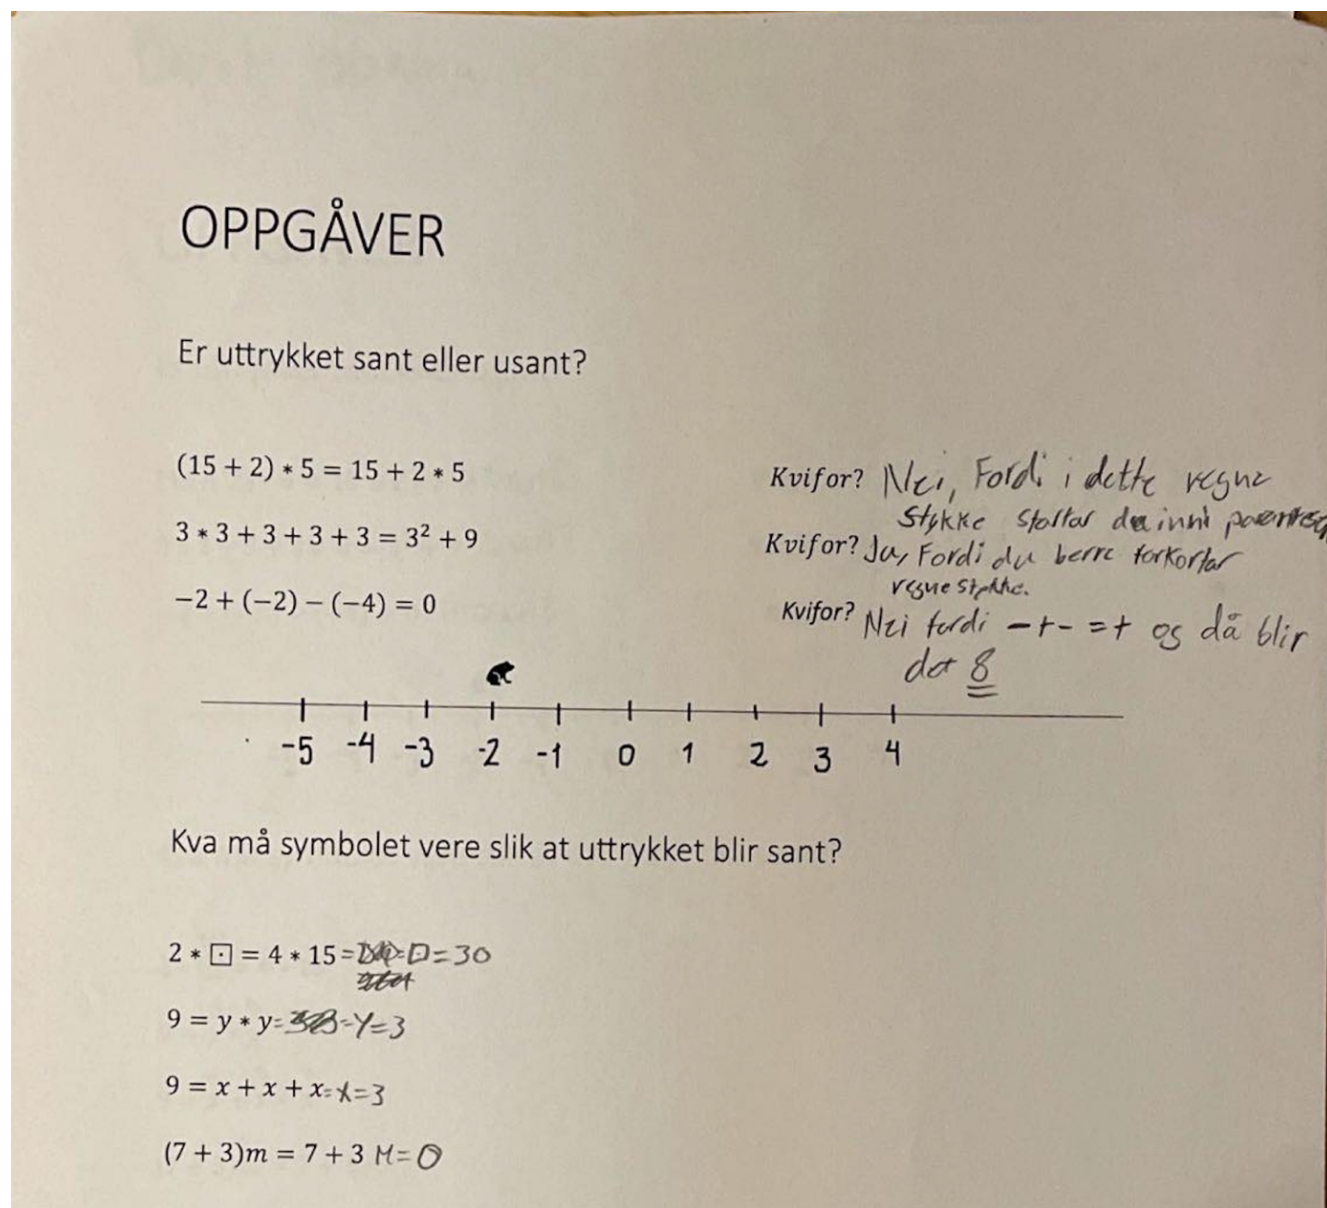 OPPGÅVER
Er uttrykket sant eller usant?
(15 + 2) * 5 = 15 + 2 * 5
Kvifor? Nei, Fordi i dette regne
stykke startar du inni parentesen
3 * 3 + 3 + 3 + 3 = 3² + 9
Kvifor? Ja, Fordi du berre forkortar
regne stykke.
−2 + (−2) − (−4) = 0
Kvifor? Nei fordi -+- =+ og då blir
det 8
-5 -4 -3 -2 -1 0 1 2 3 4
Kva må symbolet vere slik at uttrykket blir sant?
2 * ⊡ = 4 * 15 = □=30
9 = y * y = Y=3
9 = x + x + x = x=3
(7 + 3)m = 7 + 3 M=0